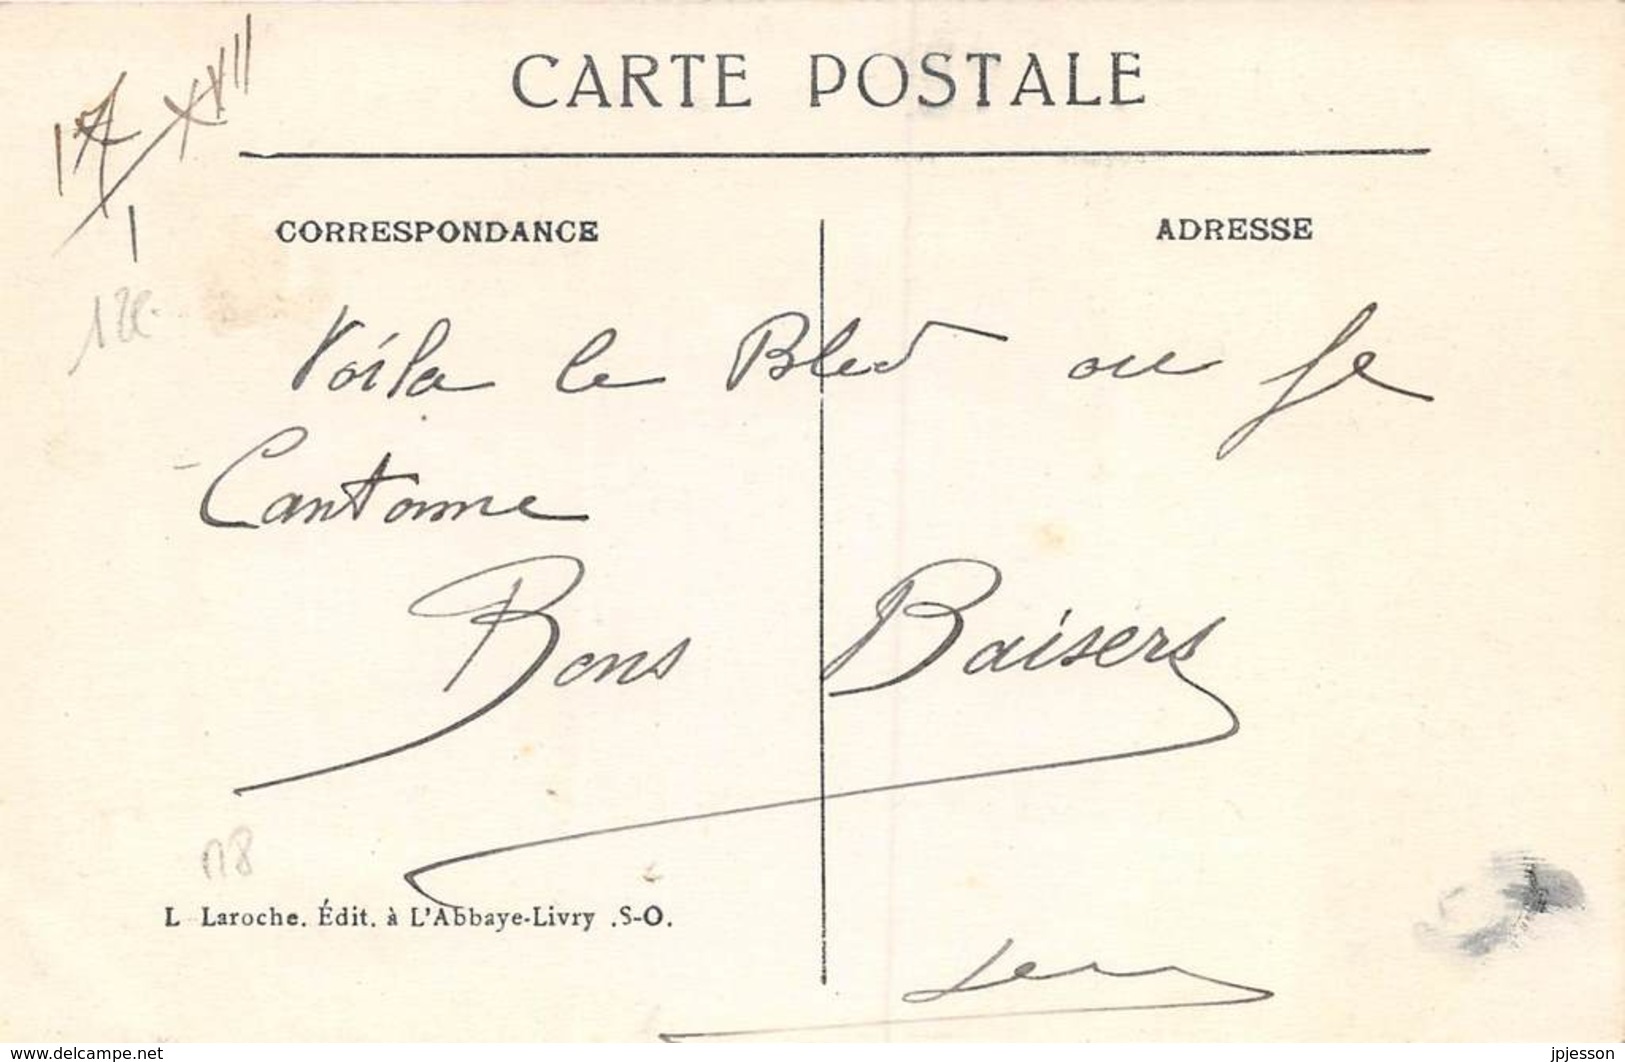 CARTE POSTALE
CORRESPONDANCE
ADRESSE
Voila le Bled ou je
Cantonne
Bons Baisers
L Laroche. Édit. à L'Abbaye-Livry .S-O.
www.delcampe.net
jpjesson